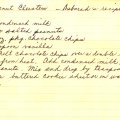 Peanut Clusters - Deborah's recipe
condensed milk
salted peanuts
pkg. chocolate chips
vanilla
Melt chocolate chips over double
from heat. Add condensed milk
Mix and drop by teaspoon
buttered cookie sheet or wax